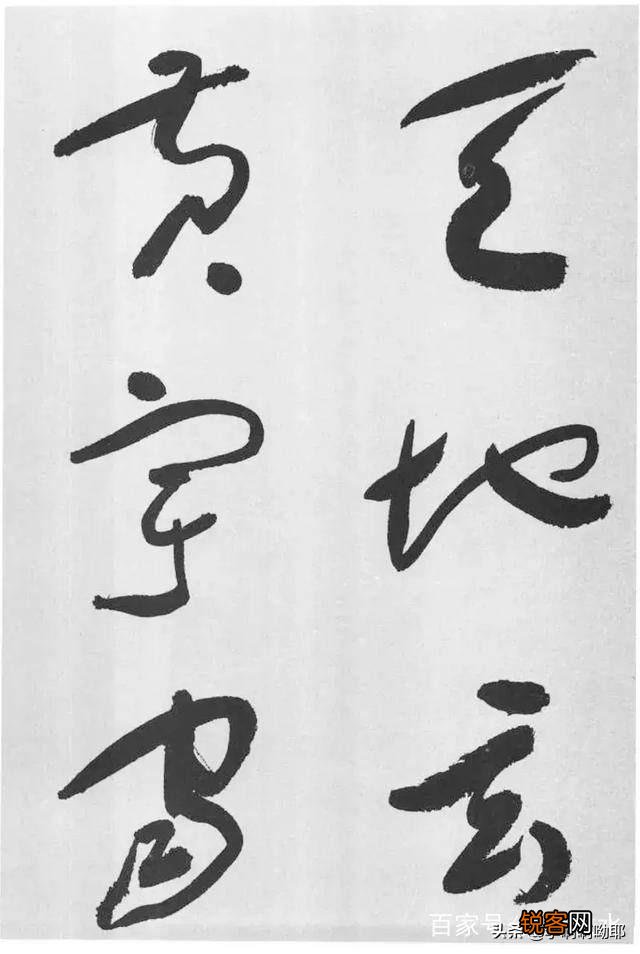 天地玄
黄宇宙
百家号
锐客网
头条